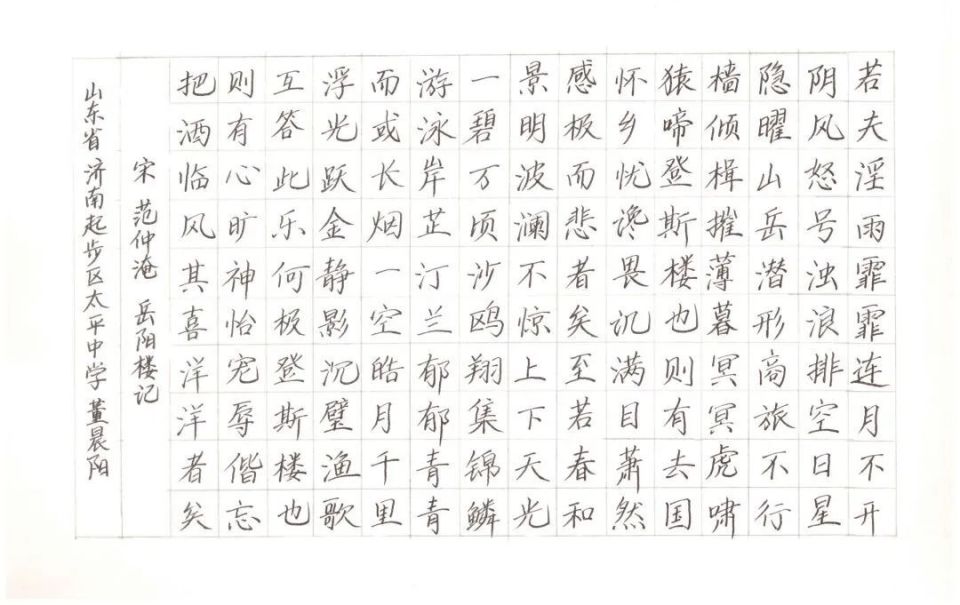 若夫淫雨霏霏连月不开
阴风怒号浊浪排空日星
隐曜山岳潜形商旅不行
樯倾楫摧薄暮冥冥虎啸
猿啼登斯楼也则有去国
怀乡忧谗畏讥满目萧然
感极而悲者矣至若春和
景明波澜不惊上下天光
一碧万顷沙鸥翔集锦鳞
游泳岸芷汀兰郁郁青青
而或长烟一空皓月千里
浮光跃金静影沉璧渔歌
互答此乐何极登斯楼也
则有心旷神怡宠辱偕忘
把酒临风其喜洋洋者矣
宋 范仲淹 岳阳楼记
山东省济南起步区太平中学 董晨阳